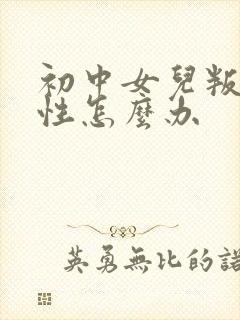 初中女兒叛
性怎麼办
英勇無比的諾